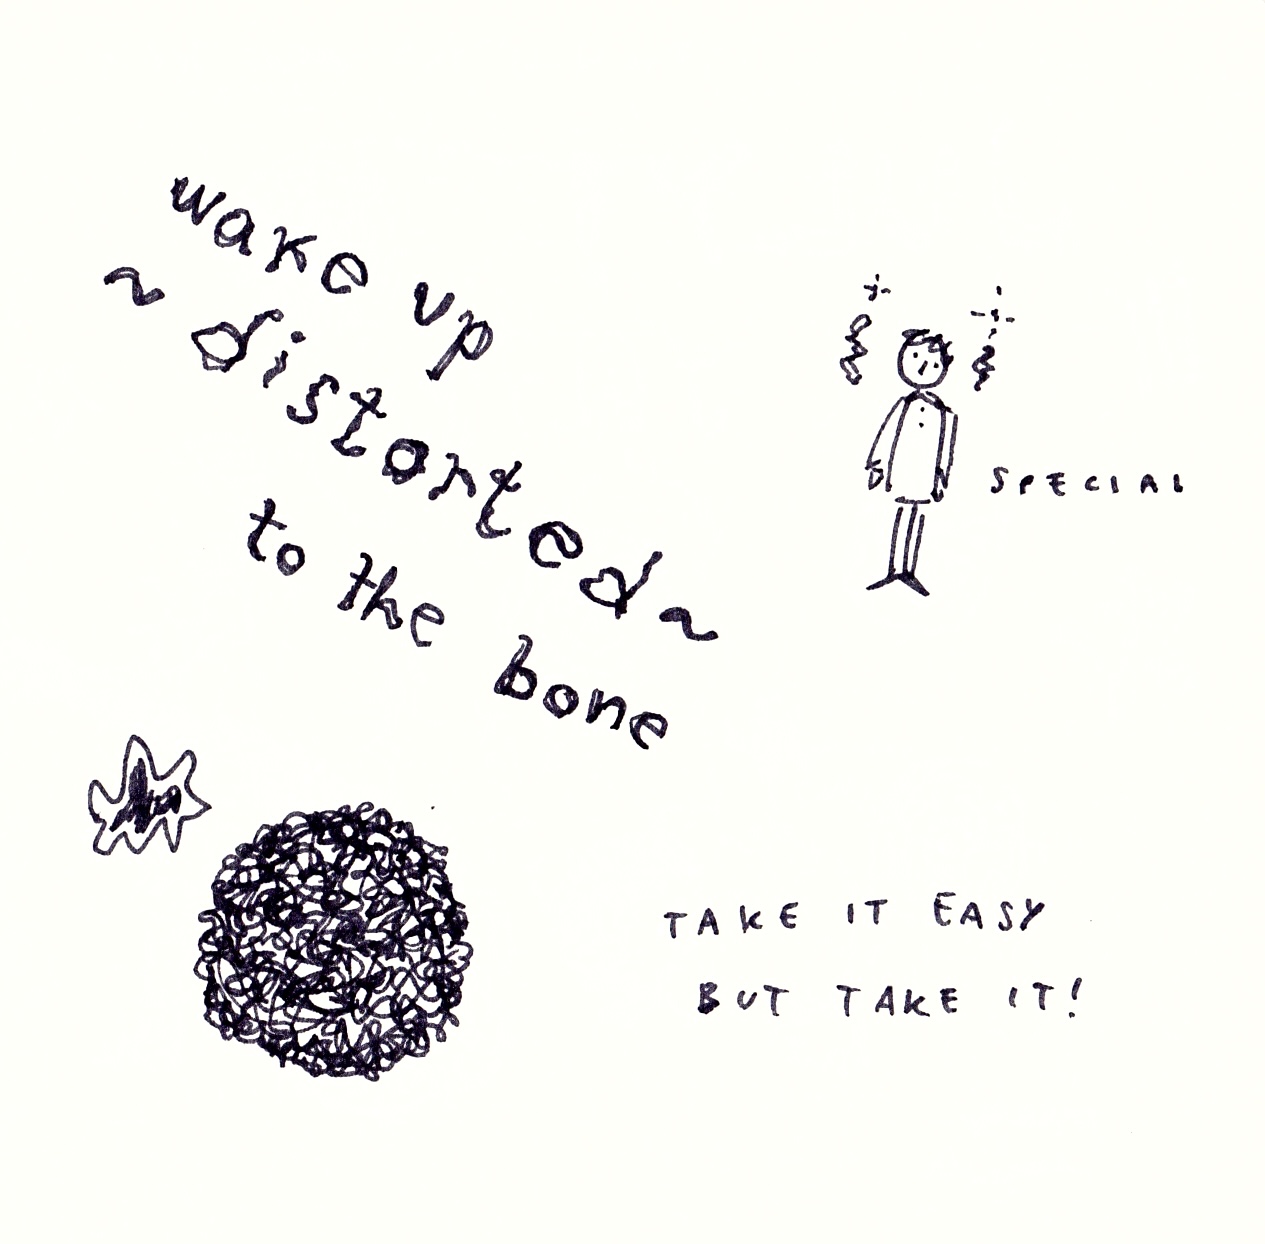 wake up
~ distorted ~
to the bone
SPECIAL
TAKE IT EASY
BUT TAKE IT!